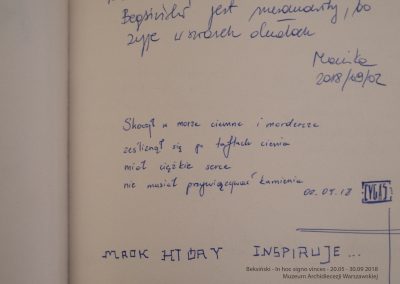 Beksiński jest nieśmiertelny, bo
żyje w swoich dziełach
Monika
2018/09/02
Skoczył w morze ciemne i mordercze
ześliznął się po taflach cienia
miał ciężkie serce
nie musiał przywiązywać kamienia
MROK KTÓRY INSPIRUJE...
Beksiński - In hoc signo vinces - 20.05 - 30.09.2018
Muzeum Archidiecezji Warszawskiej